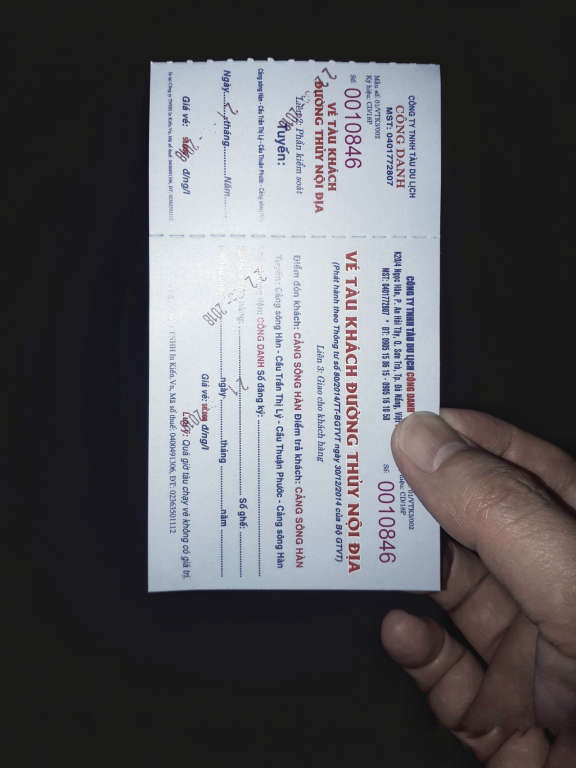 CÔNG TY TNHH TÀU DU LỊCH
CÔNG DANH
MST: 0401772807
Mẫu số: 01/VTK3/002
Ký hiệu: CD/18P
Số: 0010846
VÉ TÀU KHÁCH
ĐƯỜNG THỦY NỘI ĐỊA
Liên 2: Phần kiểm soát
Tuyến:
Cảng sông Hàn - Cầu Trần Thị Lý - Cầu Thuận Phước - Cảng sông
Ngày tháng Năm
Giá vé: đ/ng/l
CÔNG TY TNHH TÀU DU LỊCH CÔNG DANH
K20/4 Ngọc Hân, P. An Hải Tây, Q. Sơn Trà, Tp. Đà Nẵng,
MST: 0401772807 * ĐT: 0905 15 06 15 - 0905 16 10 50
01/VTK3/002
CD/18P
Số: 0010846
VÉ TÀU KHÁCH ĐƯỜNG THỦY NỘI ĐỊA
(Phát hành theo Thông tư số 80/2014/TT-BGTVT ngày 30/12/2014 của Bộ GTVT)
Liên 3: Giao cho khách hàng
Điểm đón khách: CẢNG SÔNG HÀN Điểm trả khách: CẢNG SÔNG HÀN
Tuyến: Cảng sông Hàn - Cầu Trần Thị Lý - Cầu Thuận Phước - Cảng sông Hàn
CÔNG DANH Số đăng ký:
Số ghế:
ngày tháng năm
2018
Giá vé: đ/ng/l
Lưu ý: Quá giờ tàu chạy vé không có giá trị.
TNHH In Kiến Vn, Mã số thuế: 0400491306, ĐT: 02363501112